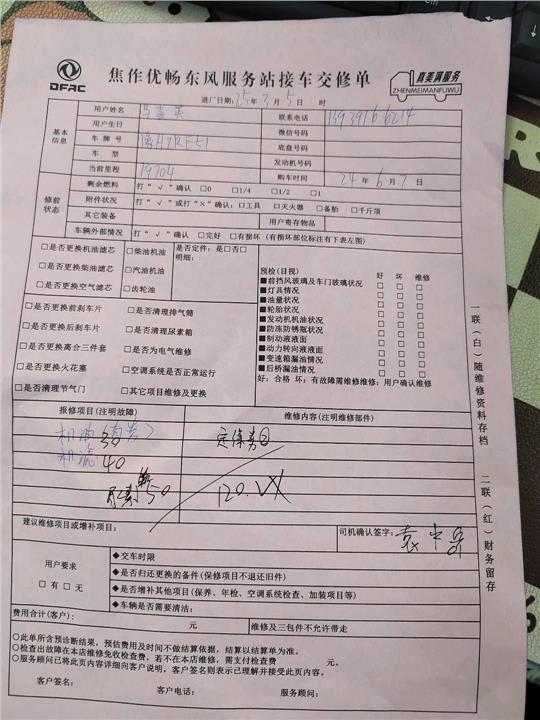 DFAC
焦作优畅东风服务站接车交修单
真美满服务
ZHENMEIMANFUWU
进厂日期：25年3月5日 时
基本信息
用户姓名 联系电话
用户生日 微信号码
车牌号 豫H7RE51 底盘号码
车 型 发动机号码
当前里程 19704 购车时间 24年6月1日
修前状态
剩余燃料 打“√”确认 □0 □1/4 □1/2 □1
附件状况 打“√”或打“×”确认：□工具 □灭火器 □备胎 □千斤顶
其它装备 用户寄存物品
车辆外部情况 打“√”确认 □完好 □有损坏（有损坏部位标注有下表左图）
□是否更换机油滤芯 □柴油机油 是否定件：是□否□
□是否更换柴油滤芯 □汽油机油 明细：
□是否更换空气滤芯 □齿轮油
□是否更换前刹车片 □是否清理排气筒
□是否更换后刹车片 □是否清理尿素箱
□是否更换离合三件套 □是否为电气维修
□是否更换火花塞 □空调系统是否正常运行
□是否清理节气门 □其它项目维修及更换
预检(目视) 好 坏 维修
■前挡风玻璃及车门玻璃状况 □ □ □
■灯具情况 □ □ □
■油量状况 □ □ □
■轮胎状况 □ □ □
■发动机机油状况 □ □ □
■防冻防锈瓶状况 □ □ □
■制动液液面 □ □ □
■动力转向液液面 □ □ □
■变速箱漏油情况 □ □ □
■后桥漏油情况 □ □ □
好：合格 坏：有故障需维修维修：用户确认维修
报修项目(注明故障) 维修内容(注明维修部件)
机油 30
40
尿素 50 120.VX
建议维修项目或增补项目： 司机确认签字：
用户要求
□有 □无
◆交车时限
◆是否归还更换的备件(保修项目不退还旧件)
◆是否增补其他项目(保养、年检、空调系统检查、加装项目等)
◆车辆是否需要清洁：
费用合计(客户)： 元 维修及三包件不允许带走
○此单所含预诊断结果，预估费用及时间不做结算依据，结算以结算单为准。
○检查出故障在本店维修免收检查费，若不在本店维修，需支付检查费 元。
○服务顾问已将此页内容详细向客户说明，客户签名则表示已理解并接受此页内容。
客户签名： 客户电话： 服务顾问：
一联（白）随维修资料存档 二联（红）财务留存